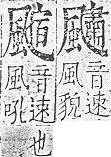 音速
風貌
音速也
風吼